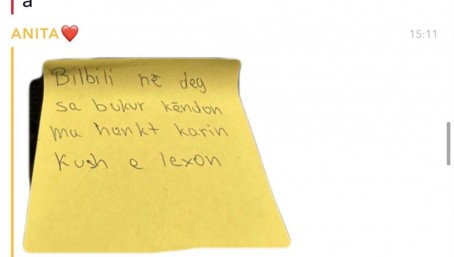 a
ANITA❤️
15:11
Bilbili në deg
sa bukur këndon
ma hankt karin
Kush e lexon